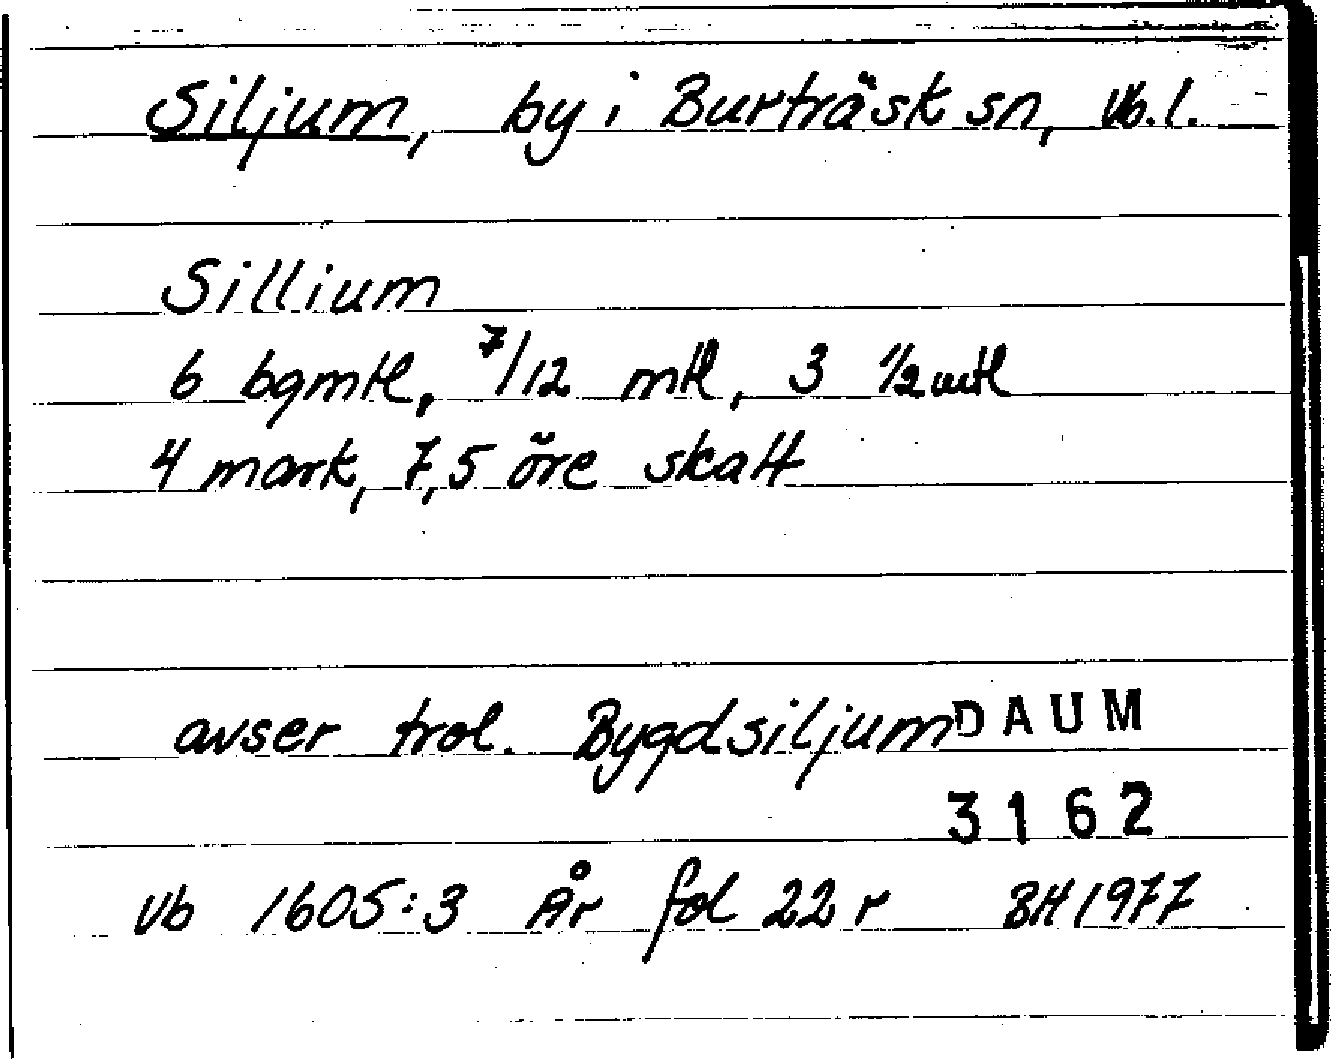 Siljum, by i Burträsk sn, Vb.l.
Sillium
6 bgmtl, 7/12 mtl, 3 1/2 mtl
4 mark, 7,5 öre skatt
avser trol. Bygdsiljum DAUM
3162
Vb 1605:3 År fol 22 r BH 1977